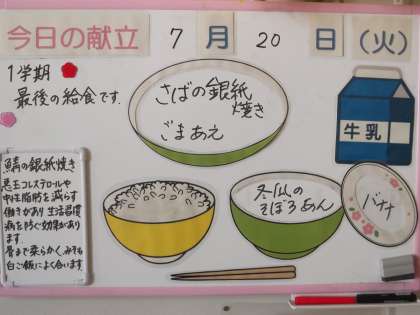 今日の献立 7月20日(火)
1学期
最後の給食です。
さばの銀紙
焼き
ごまあえ
牛乳
冬瓜の
そぼろあん
バナナ
鯖の銀紙焼き
悪玉コレステロールや
中性脂肪を減らす
働きがあり生活習慣
病を防ぐ効果があり
ます。
骨まで柔らかく、みそも
白ご飯によく合います。